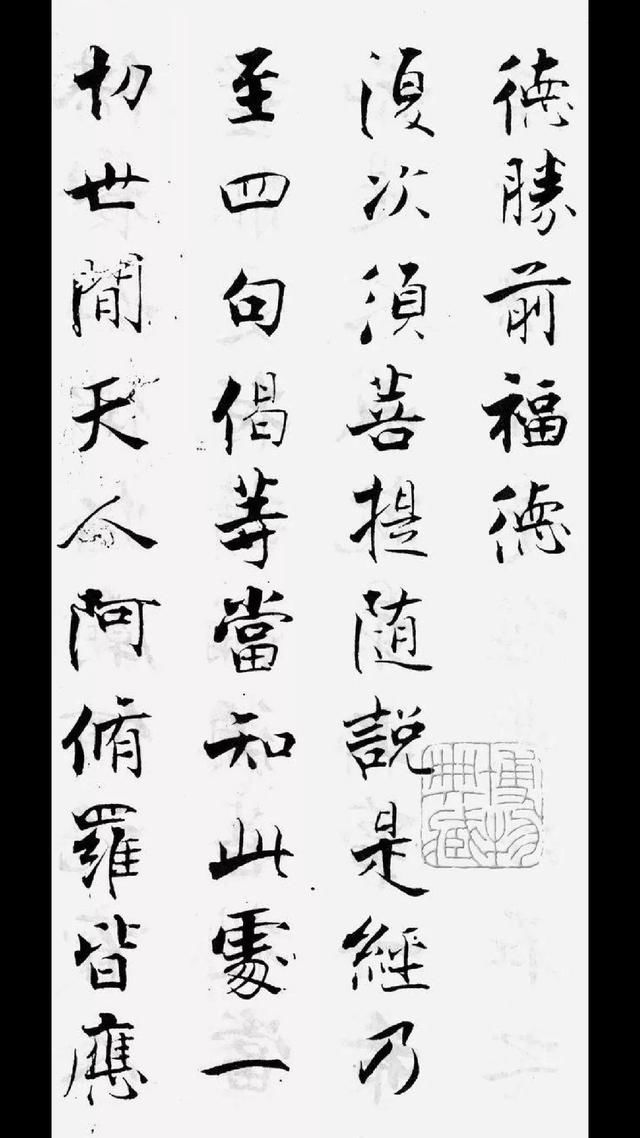 德勝前福德
須次須菩提随說是經乃
至四句偈等當知此處一
切世間天人阿脩羅皆應
博物
典藏